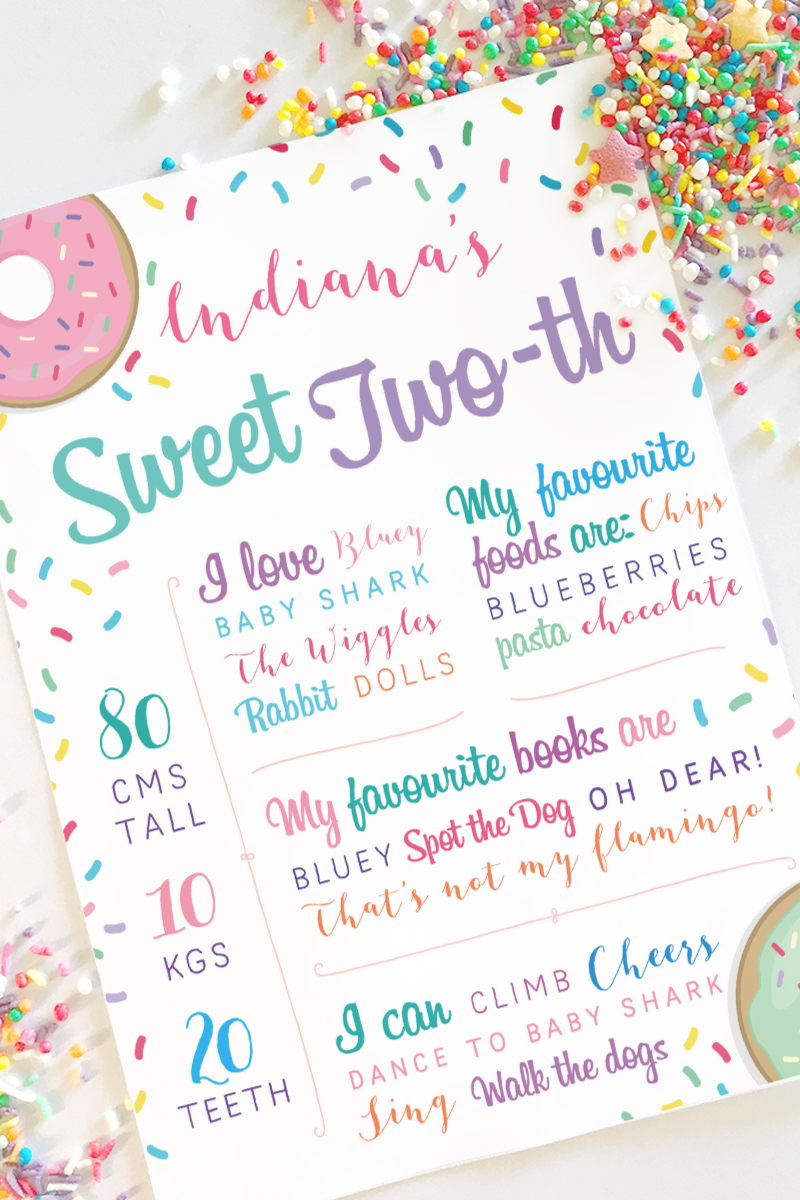 Indiana's
Sweet Two-th
80
CMS
TALL
10
KGS
20
TEETH
I love Bluey
BABY SHARK
The Wiggles
Rabbit DOLLS
My favourite
foods are: Chips
BLUEBERRIES
pasta chocolate
My favourite books are
BLUEY Spot the Dog OH DEAR!
That's not my flamingo!
I can CLIMB Cheers
DANCE TO BABY SHARK
Sing Walk the dogs